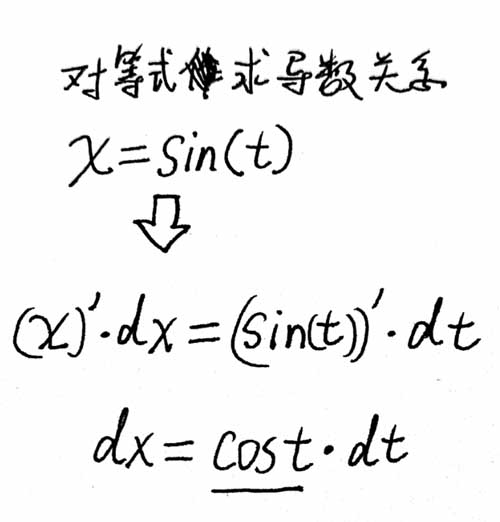 对等式求导数关系
x=sin(t)
(x)'·dx=(sin(t))'·dt
dx=cost·dt